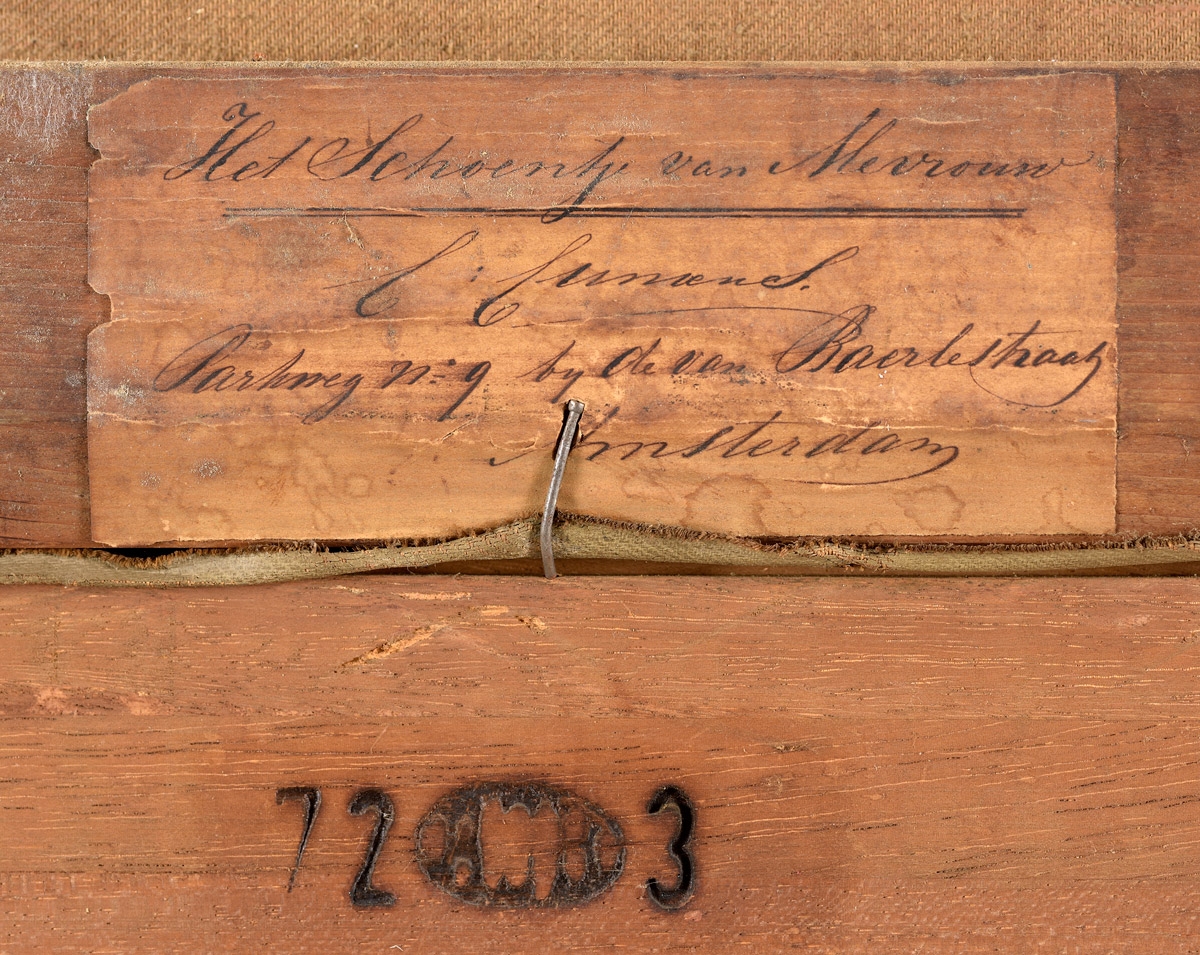 Het Schoentje van Mevrouw
C: Cunæus.
Parkweg No: 9 by de van Baerlestraat
Amsterdam
72 3